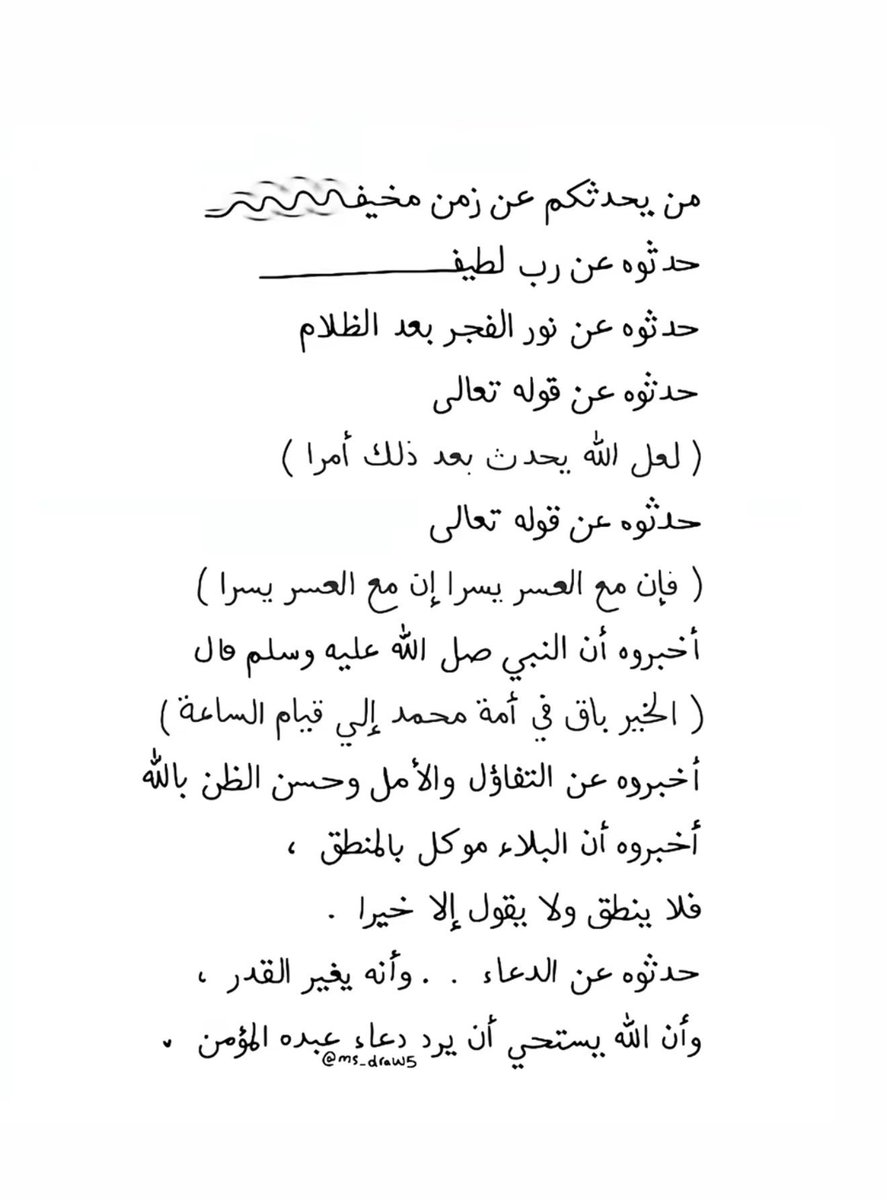 من يحدثكم عن زمن مخيف
حدثوه عن رب لطيف
حدثوه عن نور الفجر بعد الظلام
حدثوه عن قوله تعالى
( لعل الله يحدث بعد ذلك أمرا )
حدثوه عن قوله تعالى
( فإن مع العسر يسرا إن مع العسر يسرا )
أخبروه أن النبي صل الله عليه وسلم قال
( الخير باق في أمة محمد إلي قيام الساعة )
أخبروه عن التفاؤل والأمل وحسن الظن بالله
أخبروه أن البلاء موكل بالمنطق ،
فلا ينطق ولا يقول إلا خيرا .
حدثوه عن الدعاء . . وأنه يغير القدر ،
وأن الله يستحي أن يرد دعاء عبده المؤمن .
@ms_draw5